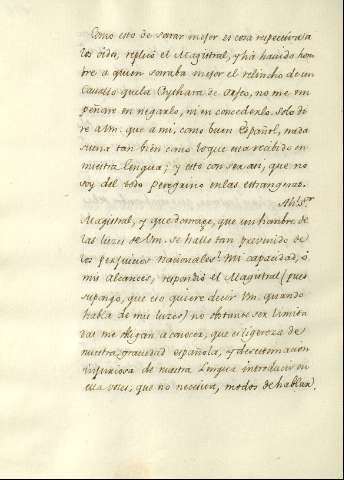 Como esto de sonar mejor es cosa respectiva à
los oidos, replicó el Magistral, y há havido hom
bre a quien sonaba mejor el relincho de un
Cavallo que la Cythara de Orfeo, no me em
peñaré en negarlo, ni en concederlo. Solo di
ré a Vm. que a mi, como buen Español, nada
suena tan bien como lo que esta recibido en
nuestra lengua; y esto con ser asi, que no
soy del todo peregrino en las estrangeras.
Ah! Sr.
Magistral, y que domage, que un hombre de
las luzes de Vm. se halle tan prevenido de
los perjuicios nacionales! Mi capacidad, ò
mis alcances, respondió el Magistral (pues
supongo, que eso quiere decir Vm. quando
habla de mis luzes) no obstante ser limita
das me llegan a conocer, que es ligereza de
nuestra gravedad española, y desestimacion
injuriosa de nuestra Lengua introducir en
ella voces, que no necesita, modos de hablar,